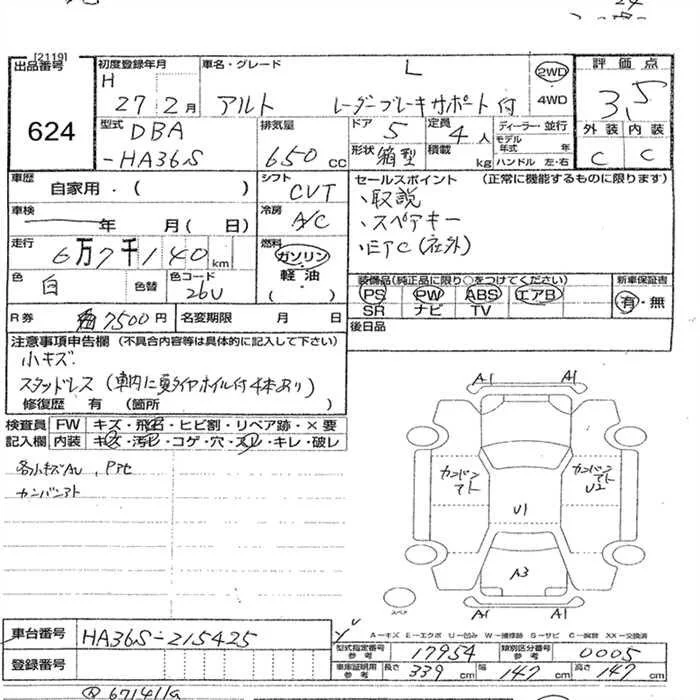 [2119]
出品番号
624
初度登録年月
H
27 2月
車名・グレード
アルト L
レーダーブレーキサポート付
2WD
4WD
評価点
3.5
外装 内装
C C
型式
DBA
-HA36S
排気量
650 cc
ドア 5
形状 箱型
定員 4人
積載 kg
ディーラー・並行
モデル年式 年
ハンドル 左・右
車歴
自家用・( )
シフト
CVT
車検
年 月(日)
冷房
A/C
走行
6万7千140km
燃料
ガソリン
軽油
( )
色
白
色替
色コード
26U
R券
7500円
名変期限 月 日
セールスポイント (正常に機能するものに限ります)
、取説
、スペアキー
、ETC(社外)
装備品(純正品に限り○をつけてください)
PS PW ABS エアB
SR ナビ TV
新車保証書
有・無
後日品
注意事項申告欄 (不具合内容等は具体的に記入して下さい)
小キズ
スタッドレス(車内に夏タイヤホイル付4本あり)
修復歴 有 (箇所 )
検査員記入欄
FW キズ・飛石・ヒビ割・リペア跡・×要
内装 キズ・汚レ・コゲ・穴・スレ・キレ・破レ
各小キズAU、
カンバンアト
A1 A1
カンバンアト
カンバンアト
U2
U1
A3
A1 A1
スペア
A-キズ E-エクボ U-凹み W-補修跡 S-サビ C-腐蝕 XX-交換済
車台番号 HA36S-215425
登録番号
型式指定番号 参考 17954
類別区分番号 参考 0005
車庫証明用 参考 長さ 339cm 幅 147cm 高さ 147cm